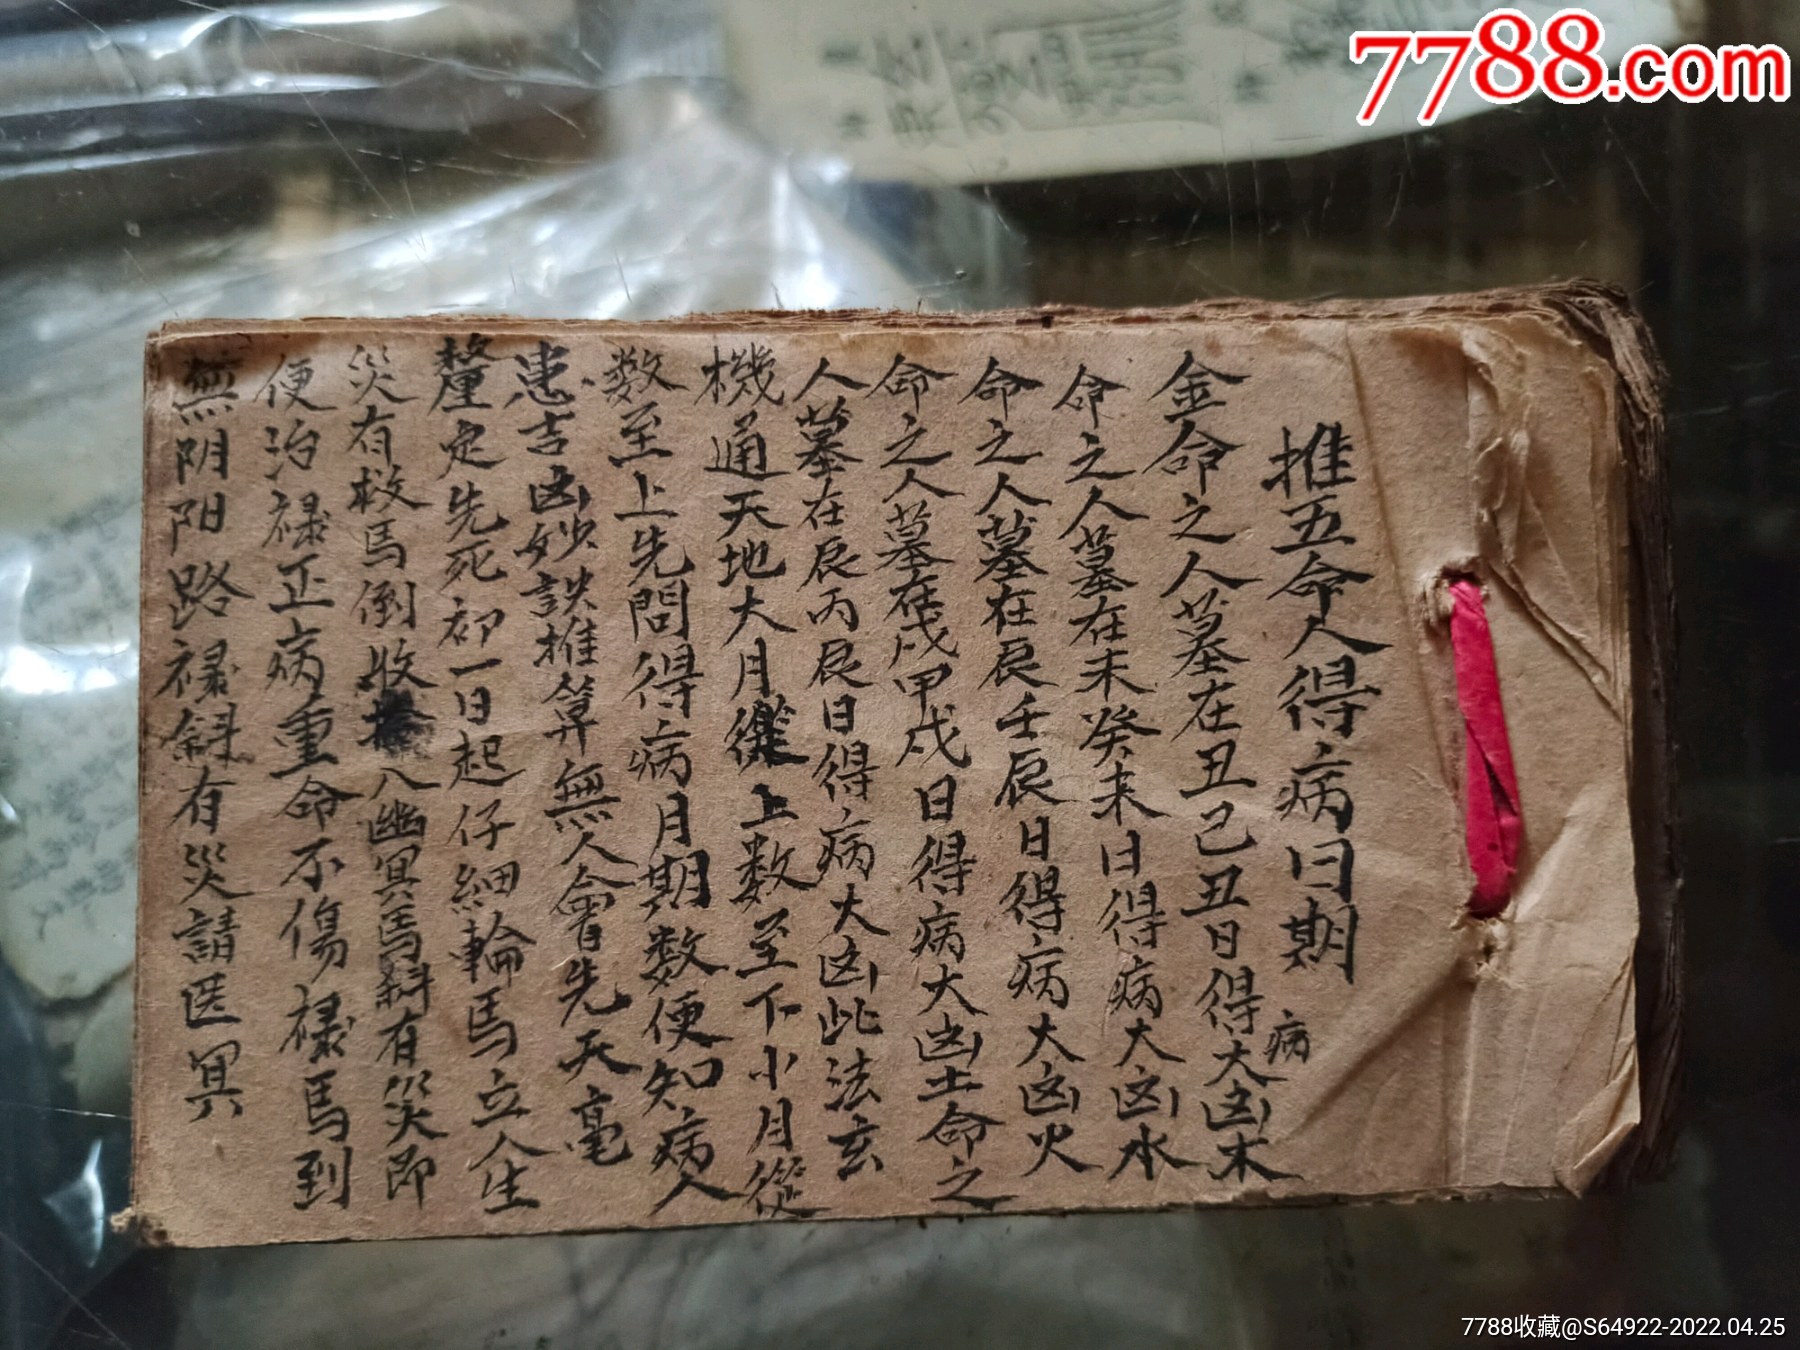 7788.com
推五命人得病日期
金命之人墓在丑己丑日得病大凶木
命之人墓在未癸未日得病大凶水
命之人墓在辰壬辰日得病大凶火
命之人墓在戌甲戌日得病大凶土命之
人墓在辰丙辰日得病大凶此法玄
機通天地大月從上数至下小月從
数至上先問得病月期数便知病人
患吉凶妙訣推算無人會先天毫
釐定先死初一日起仔細輪馬立人生
災有救馬倒收入幽冥馬斜有災即
便治禄正病重命不傷禄馬到
無阴阳路禄斜有災請医冥
7788收藏@S64922-2022.04.25